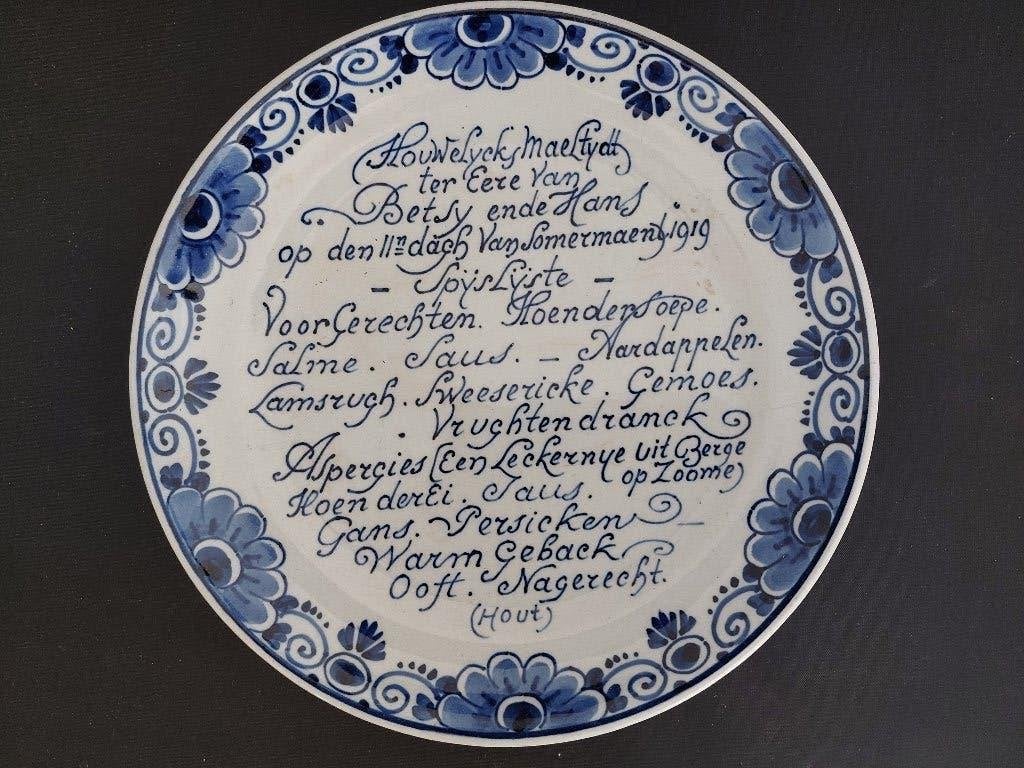 Houwelycks Maeltydt
ter Eere van
Betsy ende Hans
op den 11n dach van Somermaend 1919
- Spijslijste -
Voorgerechten. Hoendersoepe.
Salme. Saus. - Aardappelen.
Lamsrugh. Sweesericke. Gemoes.
. Vrughtendranck
Aspergies (Een Leckernye uit Berge
op Zoome)
Hoenderei. Saus.
Gans. Persicken -
Warm Geback
Ooft. Nagerecht.
(Hout)